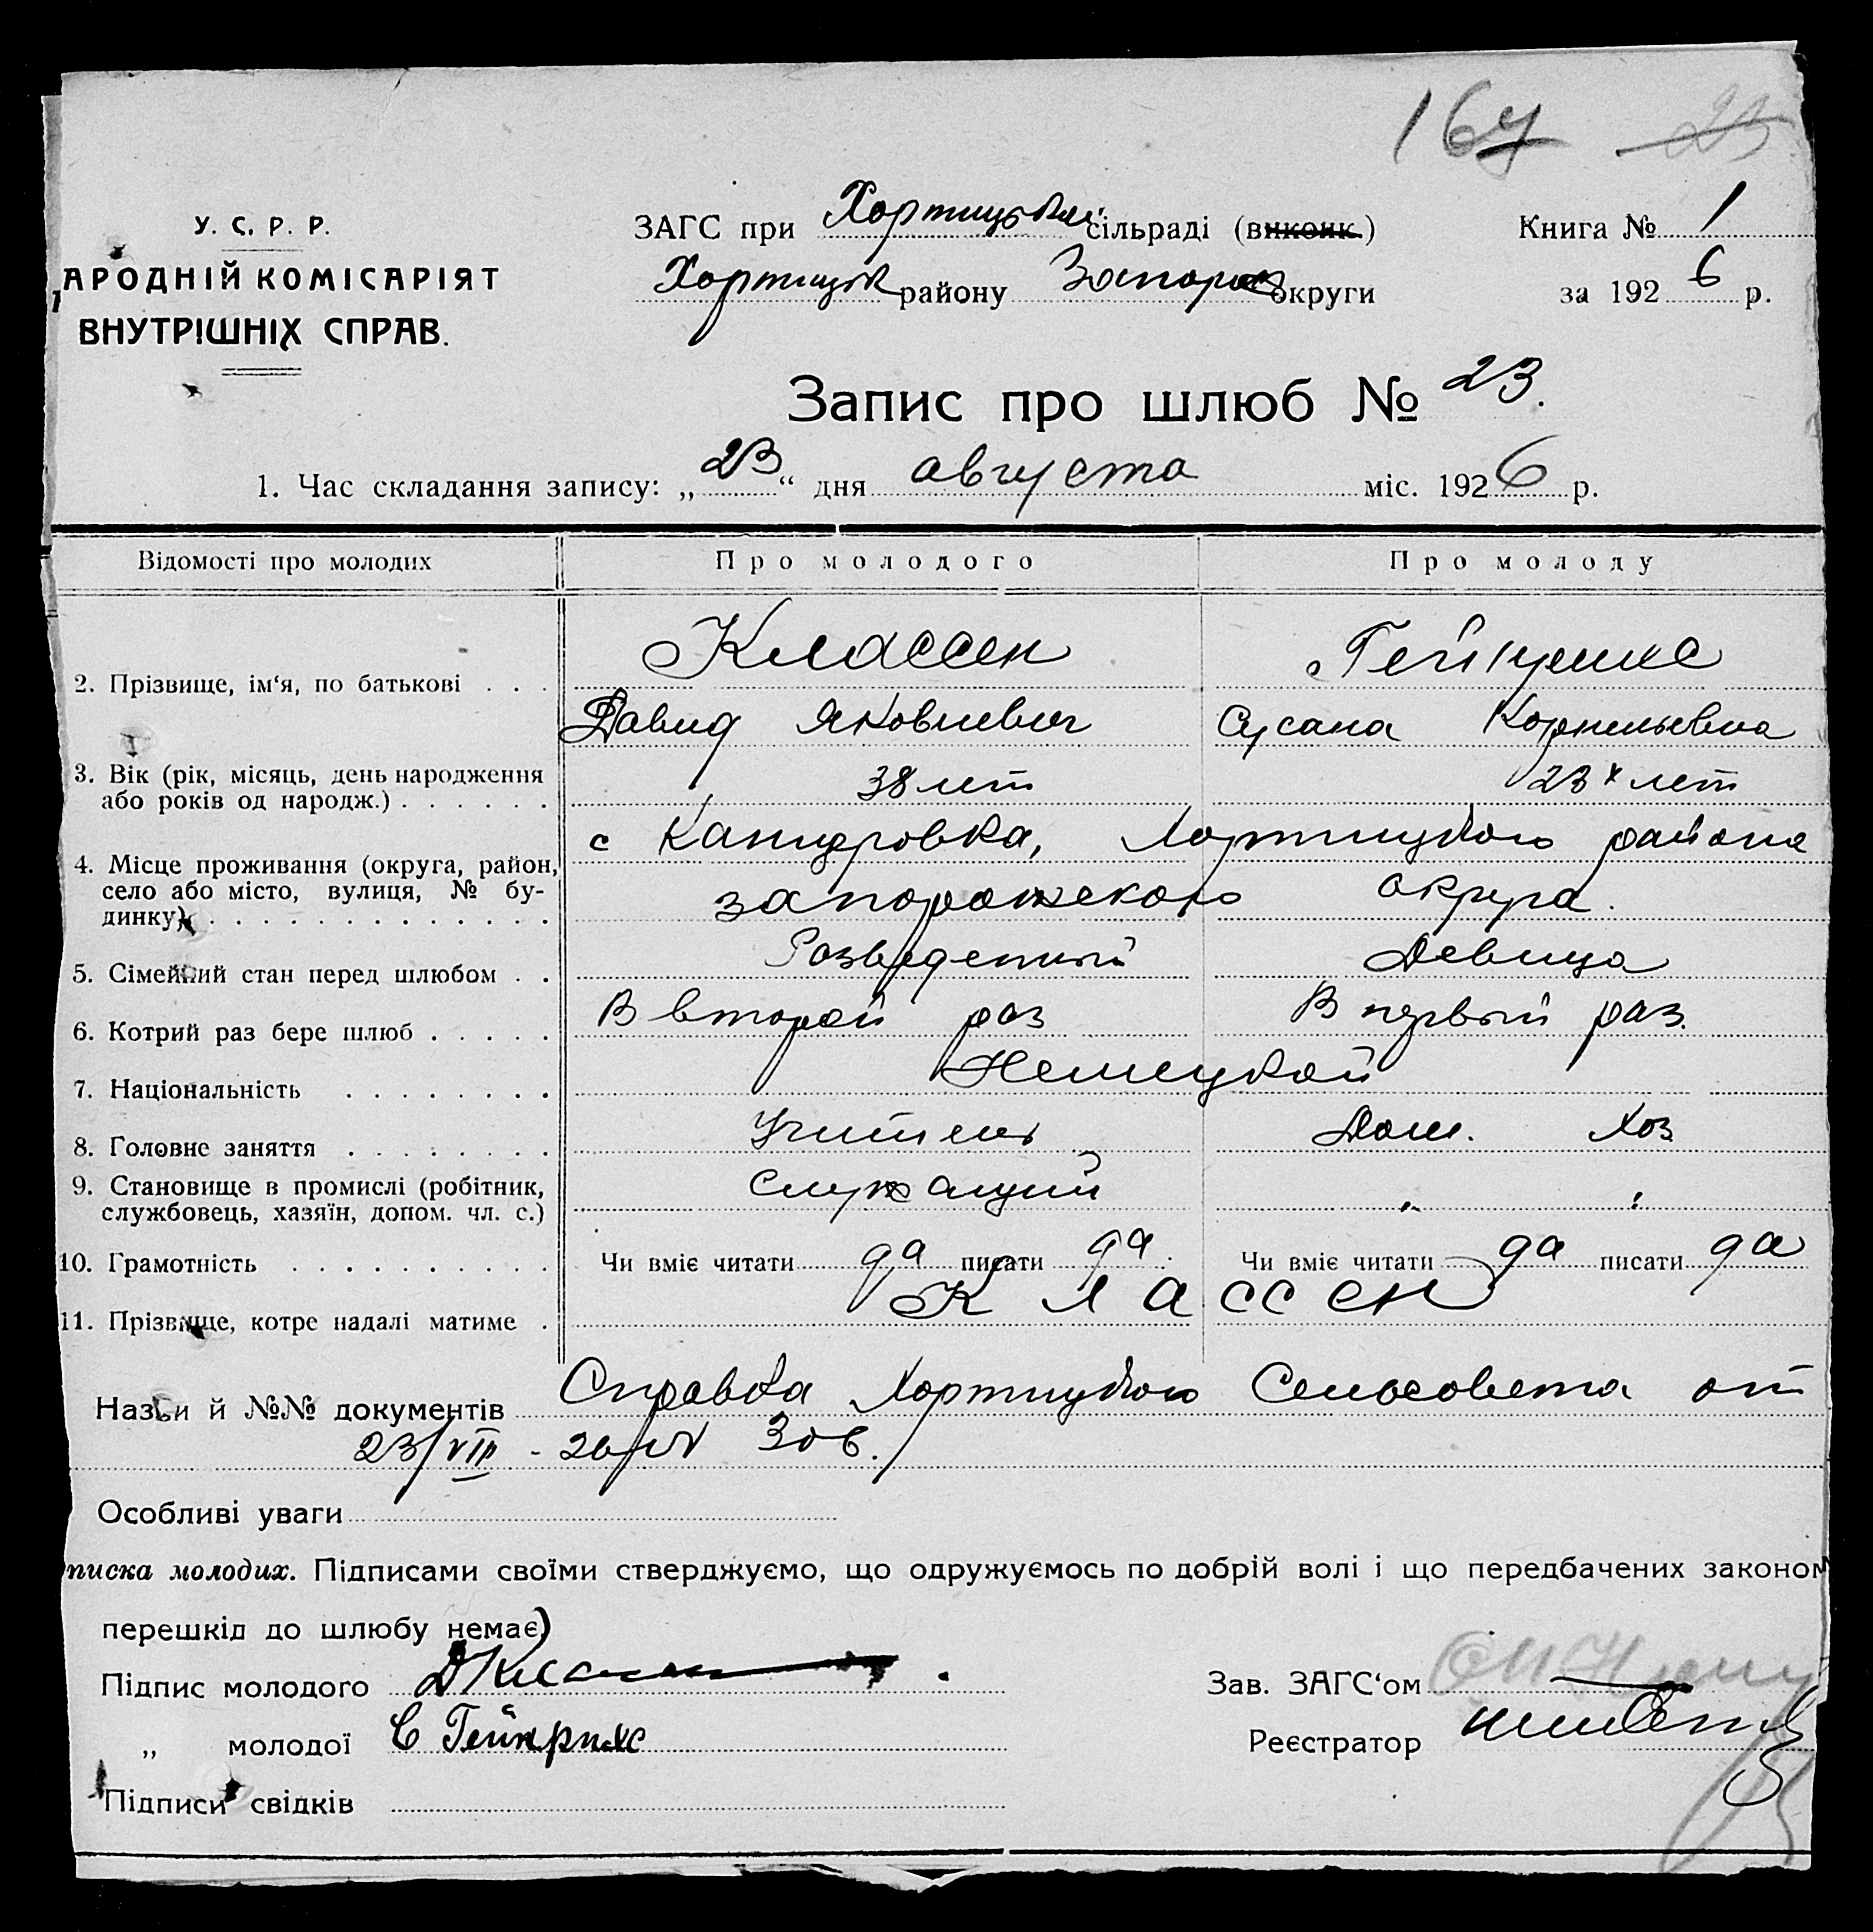 167 23
У. С. Р. Р.
АРОДНІЙ КОМІСАРІЯТ
ВНУТРІШНІХ СПРАВ.
ЗАГС при Хортицькій сільраді (виконк.)
Хортицьк району Запорож округи
Книга № 1
за 1926 р.
Запис про шлюб № 23.
1. Час складання запису: „23“ дня августа міс. 1926 р.
Відомості про молодих Про молодого Про молоду
Классен
2. Прізвище, ім‘я, по батькові . . .
Давид Яковлевич Сусана Корнельевна
3. Вік (рік, місяць, день народження 38 лет 23х лет
або років од народж.) . . . . . .
с Канцеровка, Хортицкого района
4. Місце проживання (округа, район,
село або місто, вулиця, № бу- запорожского округа.
динку) . . . . . . . . . . . . .
5. Сімейний стан перед шлюбом . . Разведенный Девица
6. Котрий раз бере шлюб . . . . . В второй раз В первый раз.
7. Національність . . . . . . . . Немецкой
8. Головне заняття . . . . . . . . Учитель Дом. Хоз
9. Становище в промислі (робітник, Служащий " "
службовець, хазяїн, допом. чл. с.)
10. Грамотність . . . . . . . . . . Чи вміє читати да писати да. Чи вміє читати да писати да
11. Прізвище, котре надалі матиме . Классен
Назви й №№ документів Справка Хортицкого Сельсовета от
23/VIII - 26 г N 306.
Особливі уваги
писка молодих. Підписами своїми стверджуємо, що одружуємось по добрій волі і що передбачених законом
перешкід до шлюбу немає)
Підпис молодого ДКлассен Зав. ЗАГС‘ом
„ молодої С Гейнрихс Реєстратор
Підписи свідків